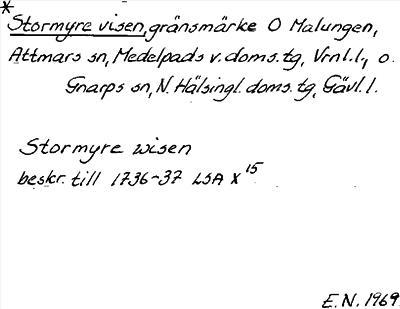 * Stormyre visen, gränsmärke O Malungen,
Attmars sn, Medelpads v. doms. tg, Vrnl. l, o.
Gnarps sn, N. Hälsingl. doms. tg, Gävl. l.
Stormyre wisen
beskr. till 1736-37 LSA X 15
E.N. 1969